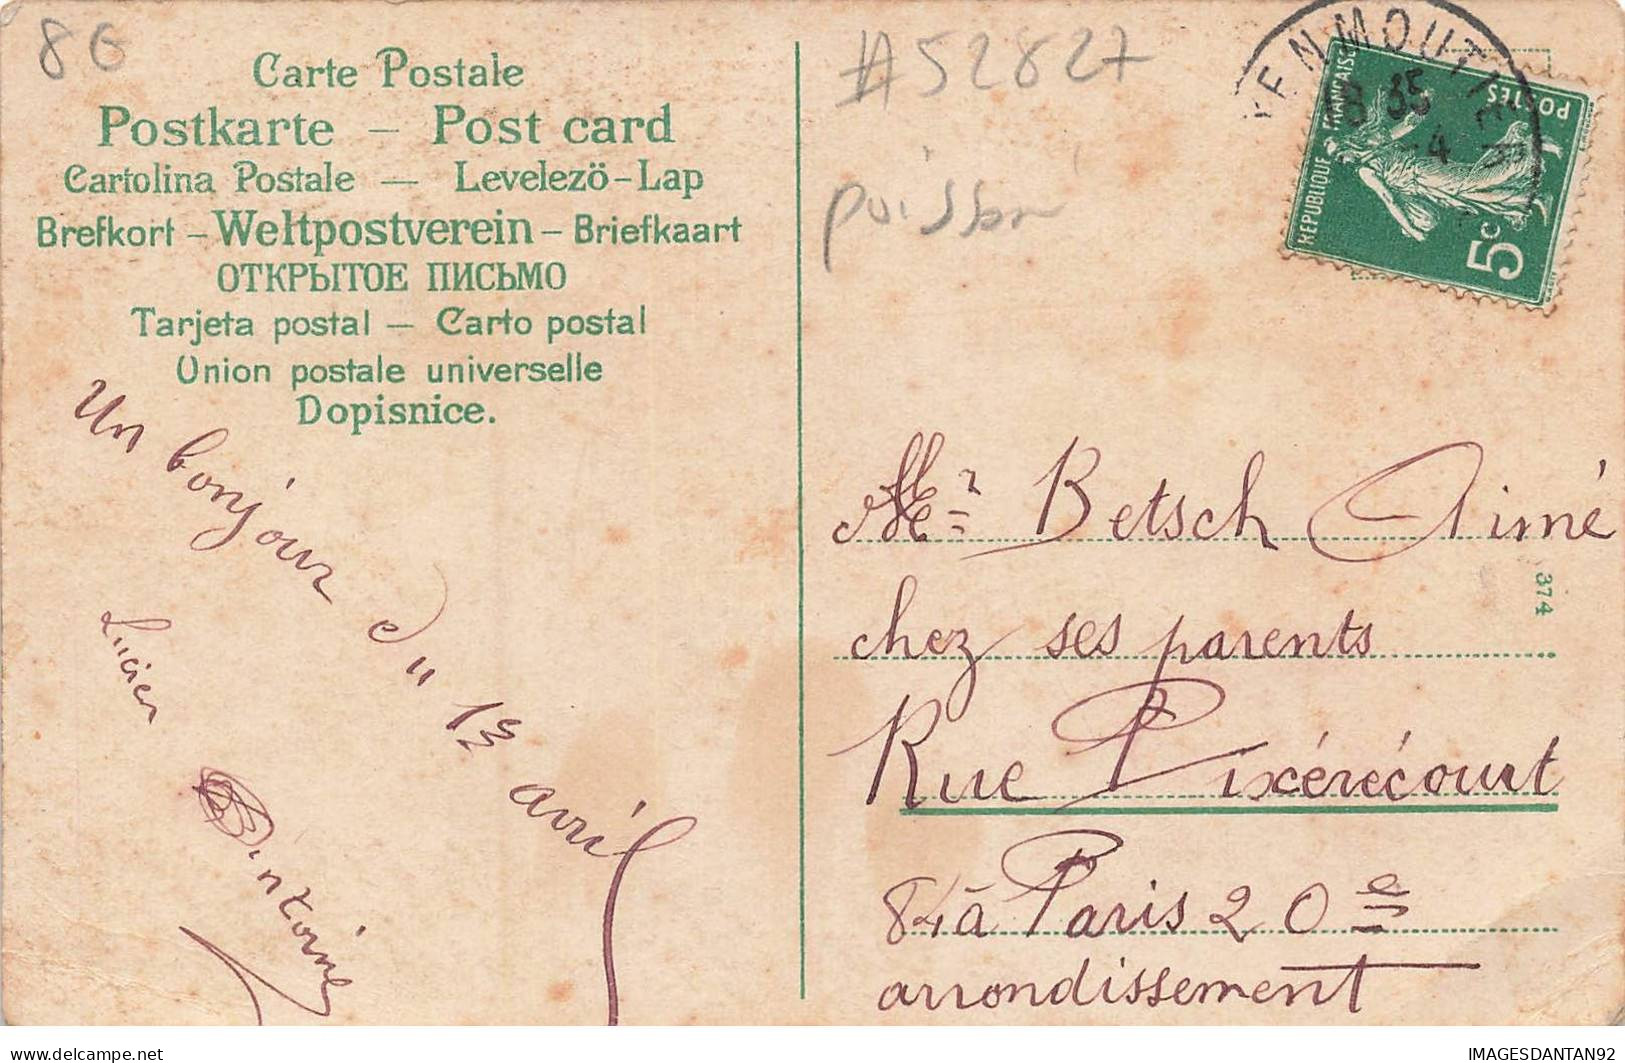 8G
Carte Postale
Postkarte – Post card
Cartolina Postale — Levelezö-Lap
Brefkort – Weltpostverein – Briefkaart
ОТКРЫТОЕ ПИСЬМО
Tarjeta postal — Carto postal
Union postale universelle
Dopisnice.
Un bonjour du 1er avril
Lucien
Antoine
#52827
poisson
MOUTIER
18 35
-4
REPUBLIQUE FRANÇAISE
POSTES
5c
Mr Betsch Aimé
chez ses parents
Rue Pixérécourt
84 à Paris 20e
arrondissement
374
www.delcampe.net
IMAGESDANTAN92